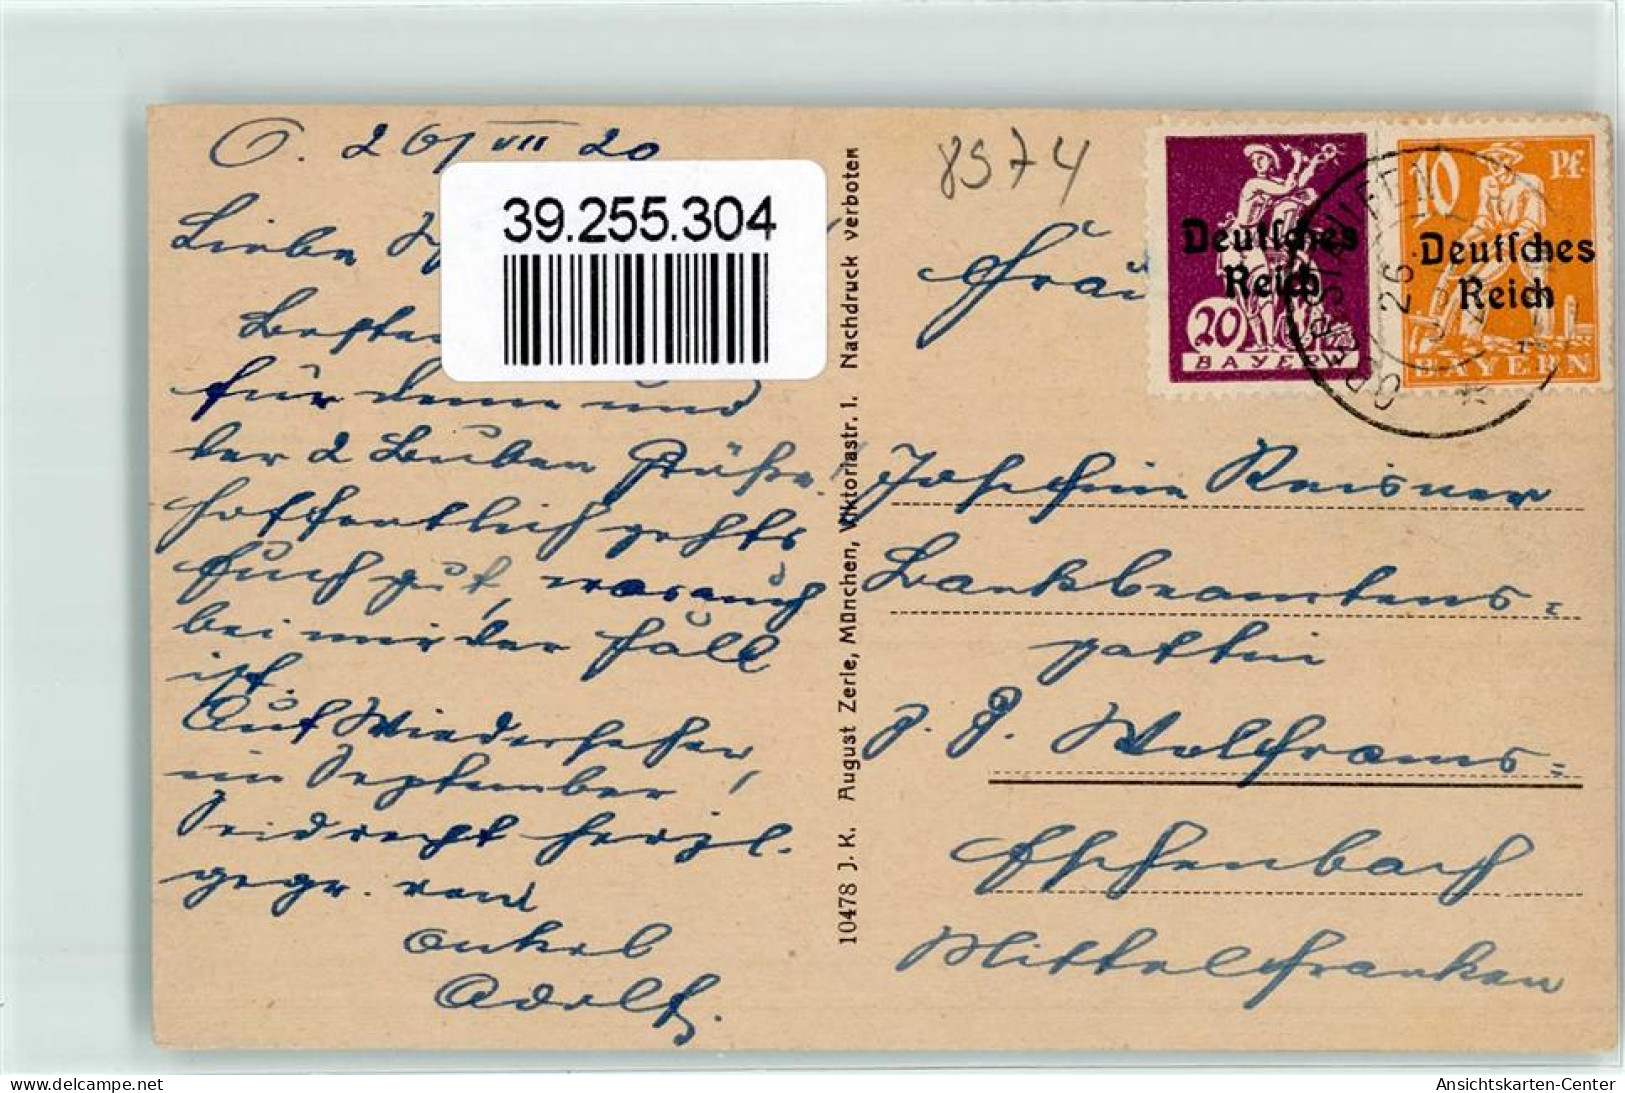 O. 26/VII 20
39.255.304
Liebe
Besten
für deine und
der 2 Buben Grüße!
hoffentlich gehts
Euch gut, was auch
bei mir der Fall
ist.
Auf Wiedersehen
im September!
Seid recht herzl.
gegr. von
Onkel
Adolf.
10478 J. K. August Zerle, München, Viktoriastr. 1. Nachdruck verboten
8574
Deutsches
Reich
20
BAYERN
10 Pf.
Deutsches
Reich
BAYERN
OBERSTAUFEN
26
Frau
Josephine Reisner
Bankbeamtens-
gattin
z. Z. Wolframs-
Eschenbach
Mittelfranken
Ansichtskarten-Center